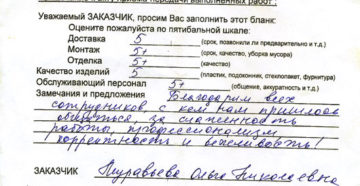 передачи выполненных работ:
Уважаемый ЗАКАЗЧИК, просим Вас заполнить этот бланк:
Оцените пожалуйста по пятибальной шкале:
Доставка 5 (срок, позвонили ли предварительно и т.д.)
Монтаж 5+ (срок, качество, уборка мусора)
Отделка 5+ (качество)
Качество изделий 5 (пластик, подоконник, стеклопакет, фурнитура)
Обслуживающий персонал 5+ (общение, аккуратность и т.д.)
Замечания и предложения Благодарим всех
сотрудников с кем нам пришлось
общаться, за слаженность
работы, профессионализм
корректность и вежливость!
ЗАКАЗЧИК Журавьева Ольга Николаевна